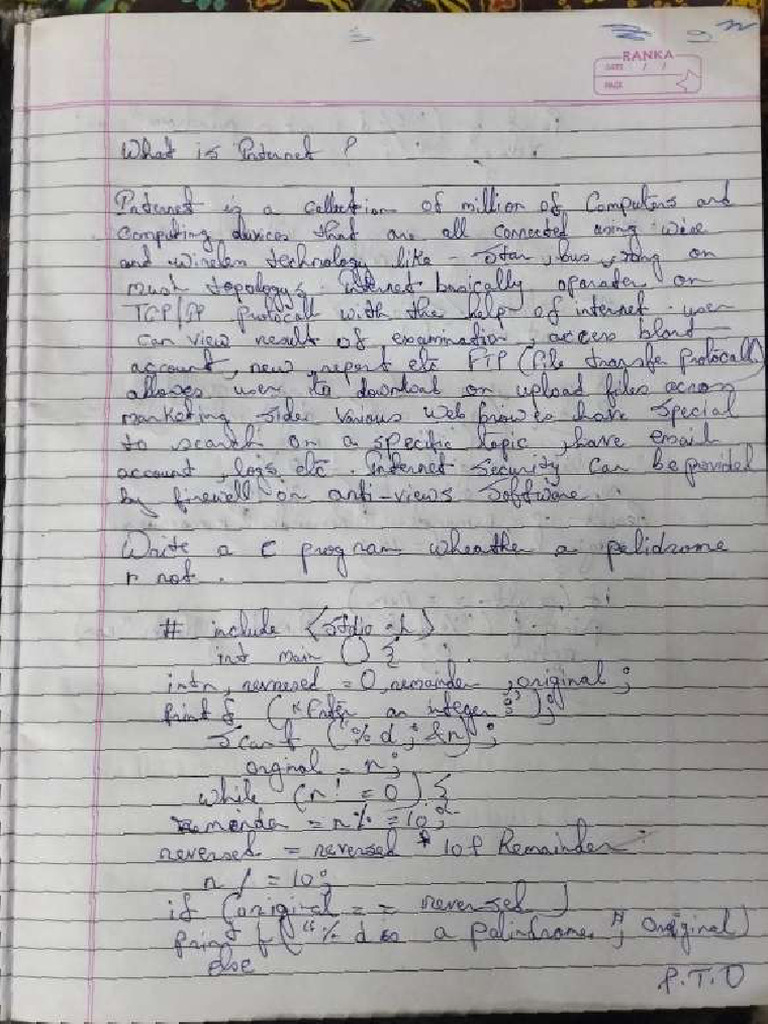 RANKA
DATE / /
PAGE
What is Internet ?
Internet is a collection of million of Computers and
Computing devices that are all connected using wire
and wireless technology like - Star, bus, ring or
mush topology. Internet basically operates on
TCP/IP protocall with the help of internet. user
can view result of examination, access
account, new, report etc FTP (File transfe Protocall)
allows user to download or upload files across
marketing side. Various Web have Special
to search on a specific topic, have email
account, logs etc. Internet Security can be provided
by firewell or anti-views Software.
Write a C program wheather a palidrome
r not.
# include <stdio.h>
int main () {
intn, reversed = 0, remainder, original ;
Print f ("Enter an integer : ");
Scanf ("%d ; &n) ;
orginal = n;
while (n! = 0) {
remainder = n% = 10;
reversed = reversed * 10 + Remainder
n / = 10;
if (original = = reversed)
print f ("% d is a palindrome. "; Original)
else
P.T.O